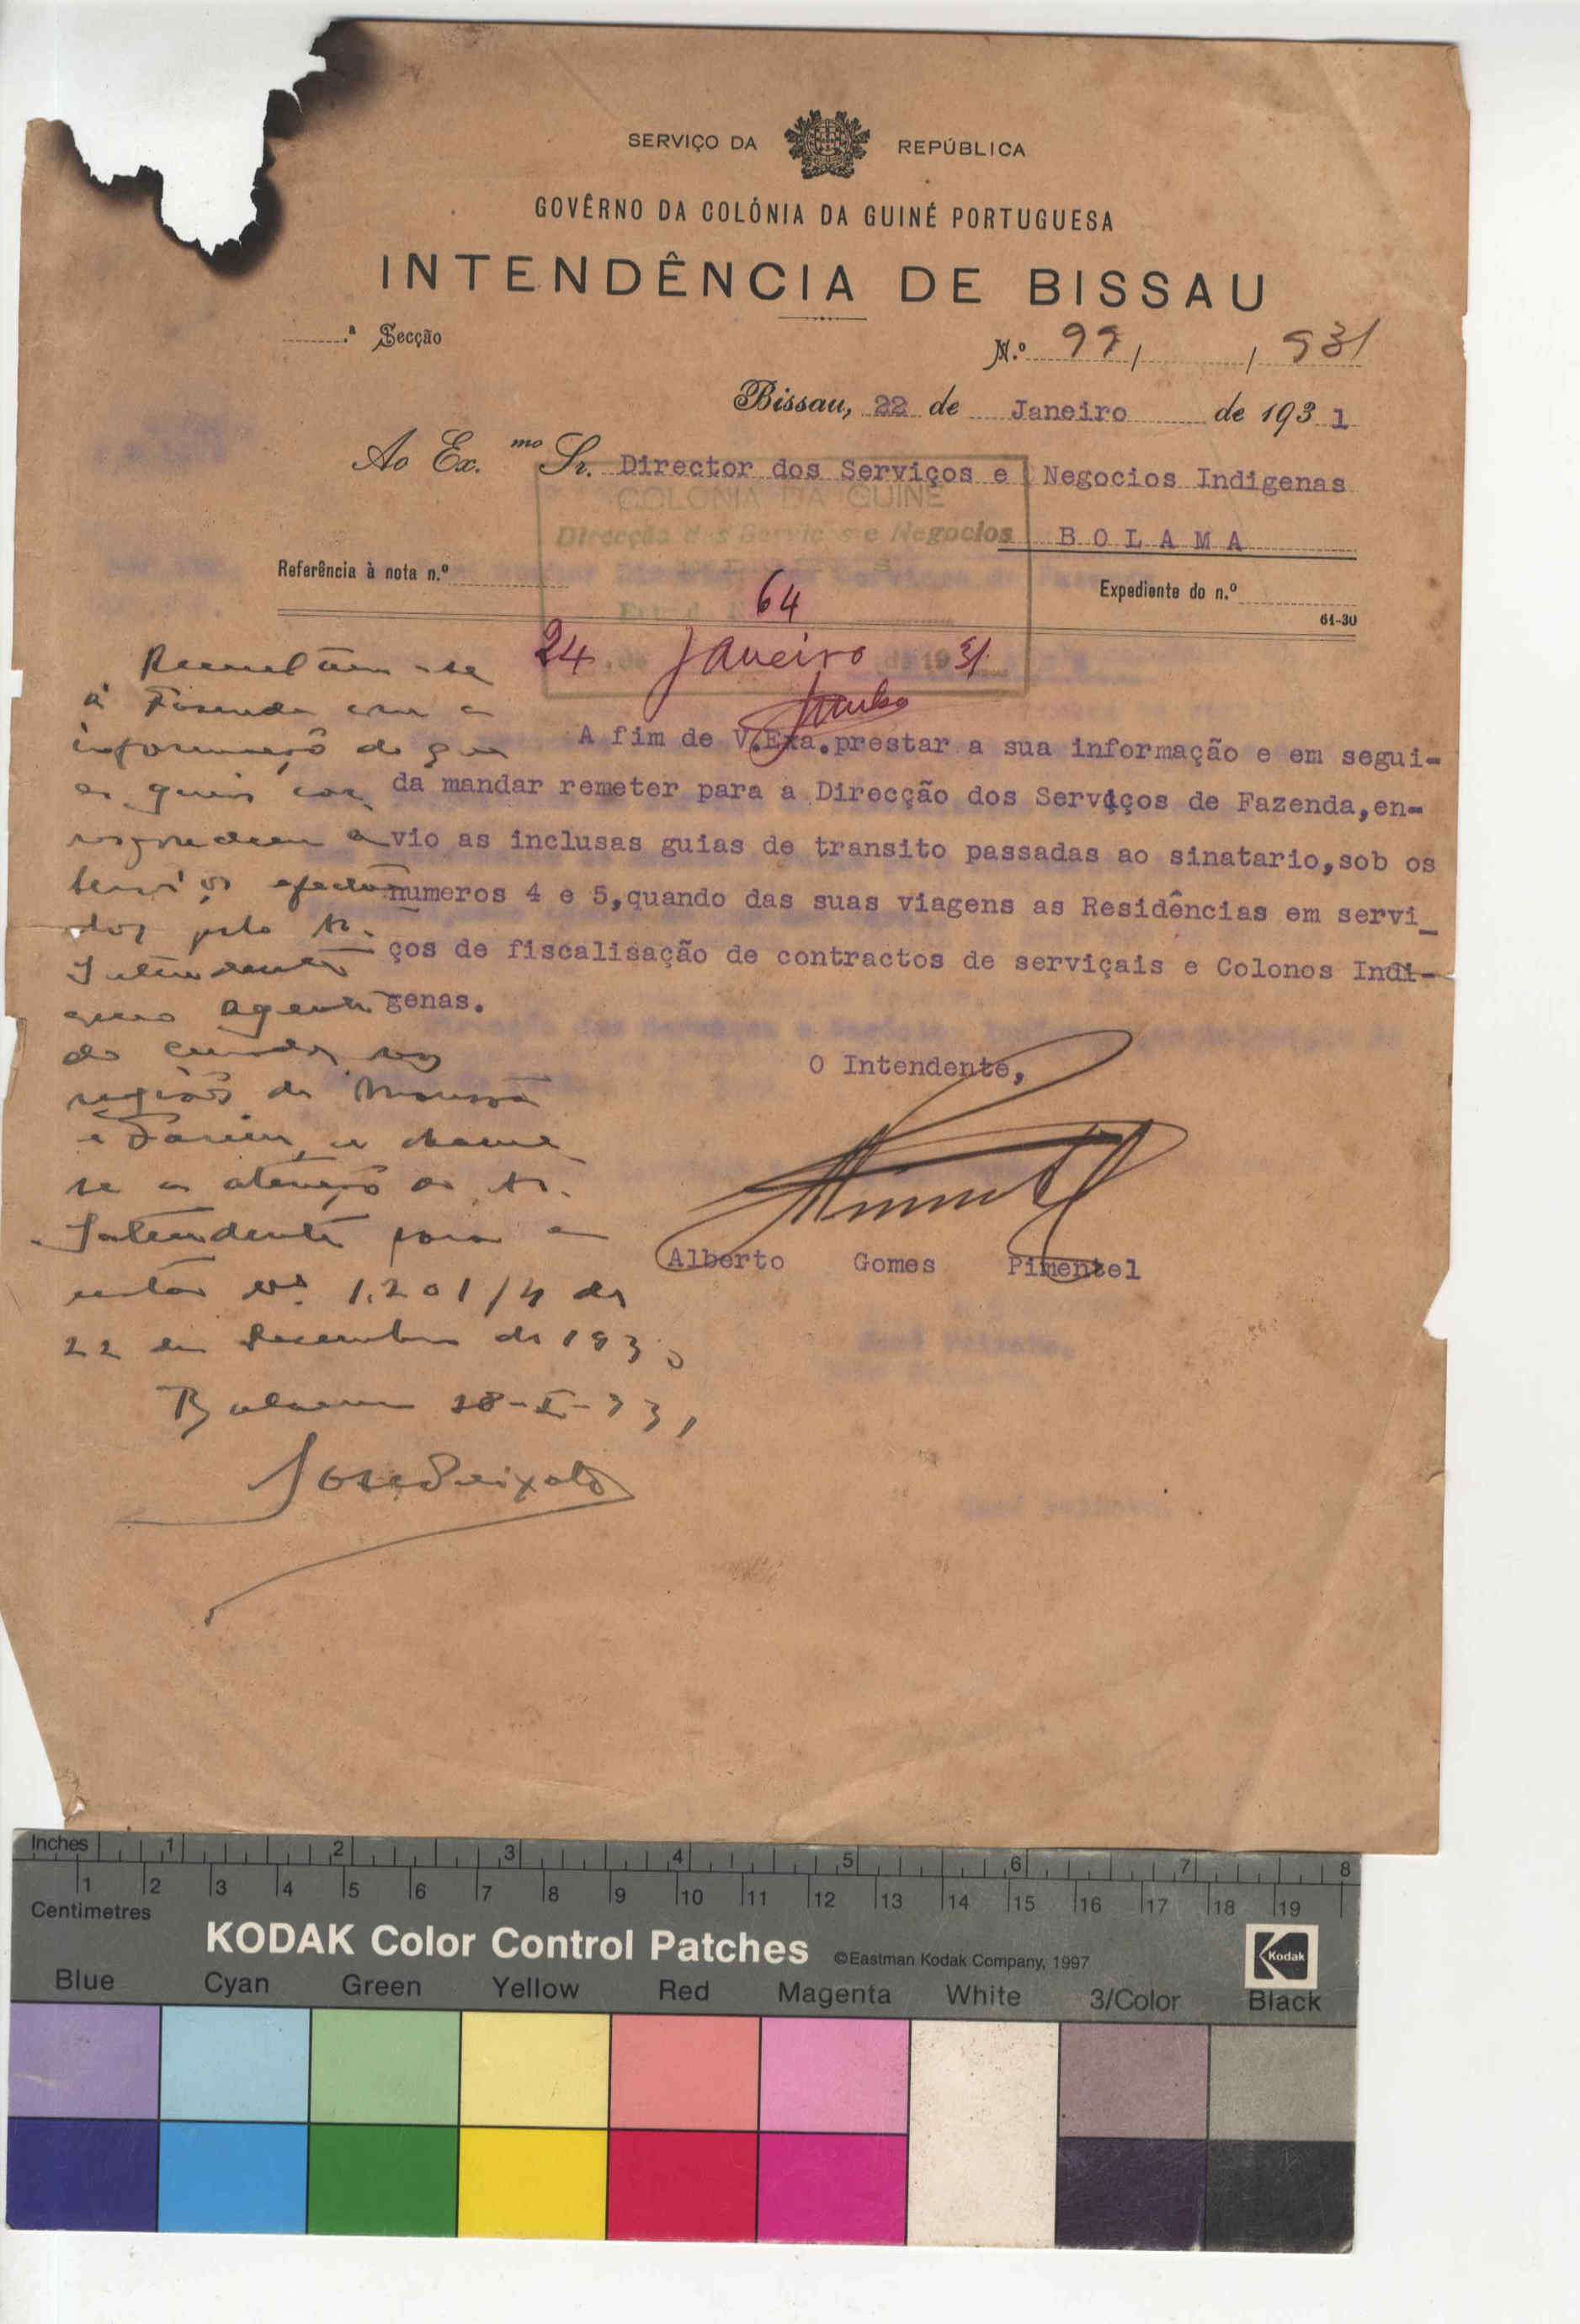 SERVIÇO DA REPÚBLICA
GOVÊRNO DA COLÓNIA DA GUINÉ PORTUGUESA
INTENDÊNCIA DE BISSAU
.ª Secção
N.º 99 / / 931
Bissau, 22 de Janeiro de 1931
Ao Ex.mo Sr. Director dos Serviços e Negocios Indigenas
COLONIA DA GUINÉ
Direcção dos Serviços e Negocios
B O L A M A
Referência à nota n.º
Expediente do n.º
64
61-30
24 de Janeiro de 1931
A fim de V.Exa.prestar a sua informação e em segui-
da mandar remeter para a Direcção dos Serviços de Fazenda,en-
vio as inclusas guias de transito passadas ao sinatario,sob os
numeros 4 e 5,quando das suas viagens as Residências em servi_
ços de fiscalisação de contractos de serviçais e Colonos Indi-
genas.
O Intendente,
Alberto Gomes Pimentel
Remetam-se
à Fazenda com a
informação de que
as guias cor
respondem a
serviços efectua
dos pelo Sr.
Intendente
como agente
do curador nas
regiões de Mansoa
e Farim, e chame
se a atenção do Sr.
Intendente para a
nota Nº 1.201/4 de
22 de Dezembro de 1930
Bolama 28-I-931
José Peixoto
Inches 1 2 3 4 5 6 7 8
1 2 3 4 5 6 7 8 9 10 11 12 13 14 15 16 17 18 19
Centimetres
KODAK Color Control Patches ©Eastman Kodak Company, 1997 Kodak
Blue Cyan Green Yellow Red Magenta White 3/Color Black